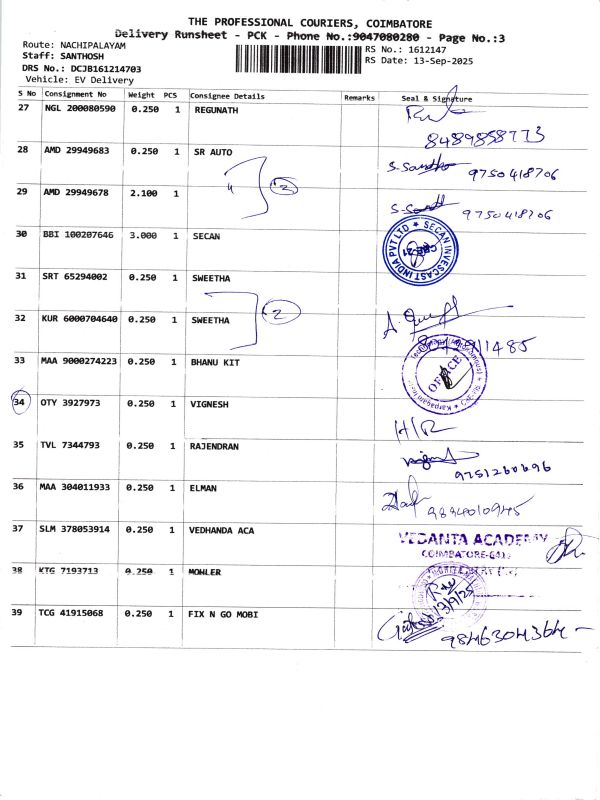 THE PROFESSIONAL COURIERS, COIMBATORE
Delivery Runsheet - PCK - Phone No.:9047080280 - Page No.:3
Route: NACHIPALAYAM
RS No.: 1612147
Staff: SANTHOSH
RS Date: 13-Sep-2025
DRS No.: DCJB161214703
Vehicle: EV Delivery
S No Consignment No Weight PCS Consignee Details Remarks Seal & Signature
27 NGL 200080590 0.250 1 REGUNATH
8489858773
28 AMD 29949683 0.250 1 SR AUTO
9750418706
2
29 AMD 29949678 2.100 1
9750418706
30 BBI 100207646 3.000 1 SECAN
SECAN INVESCAST INDIA PVT LTD
31 SRT 65294002 0.250 1 SWEETHA
2
32 KUR 6000704640 0.250 1 SWEETHA
33 MAA 9000274223 0.250 1 BHANU KIT
OFFICE
34 OTY 3927973 0.250 1 VIGNESH
H/R
35 TVL 7344793 0.250 1 RAJENDRAN
9751260696
36 MAA 304011933 0.250 1 ELMAN
9894010945
37 SLM 378053914 0.250 1 VEDHANDA ACA
VEDANTA ACADEMY
38 KTG 7193713 0.250 1 MOHLER
13/9/25
39 TCG 41915068 0.250 1 FIX N GO MOBI
9846304364